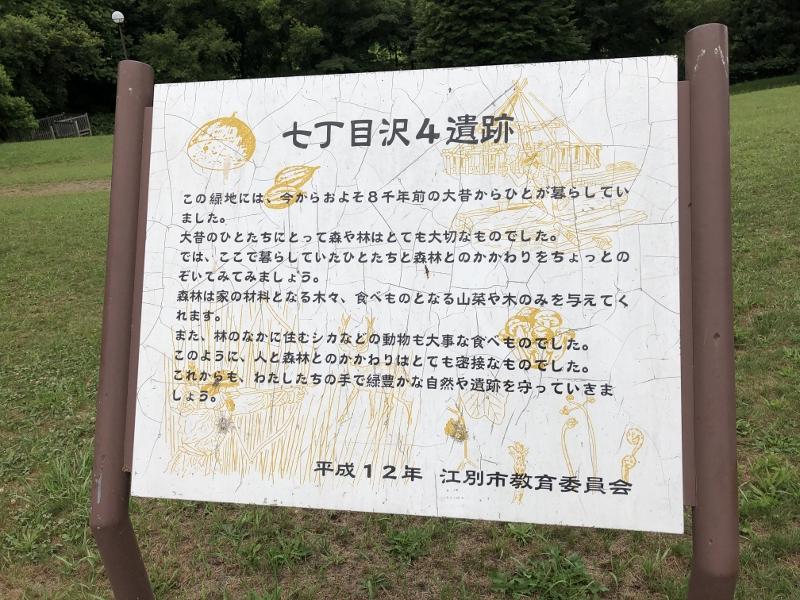 七丁目沢4遺跡
この緑地には、今からおよそ8千年前の大昔からひとが暮らしてい
ました。
大昔のひとたちにとって森や林はとても大切なものでした。
では、ここで暮らしていたひとたちと森林とのかかわりをちょっとの
ぞいてみてみましょう。
森林は家の材料となる木々、食べものとなる山菜や木のみを与えてく
れます。
また、林のなかに住むシカなどの動物も大事な食べものでした。
このように、人と森林とのかかわりはとても密接なものでした。
これからも、わたしたちの手で緑豊かな自然や遺跡を守っていきま
しょう。
平成12年 江別市教育委員会